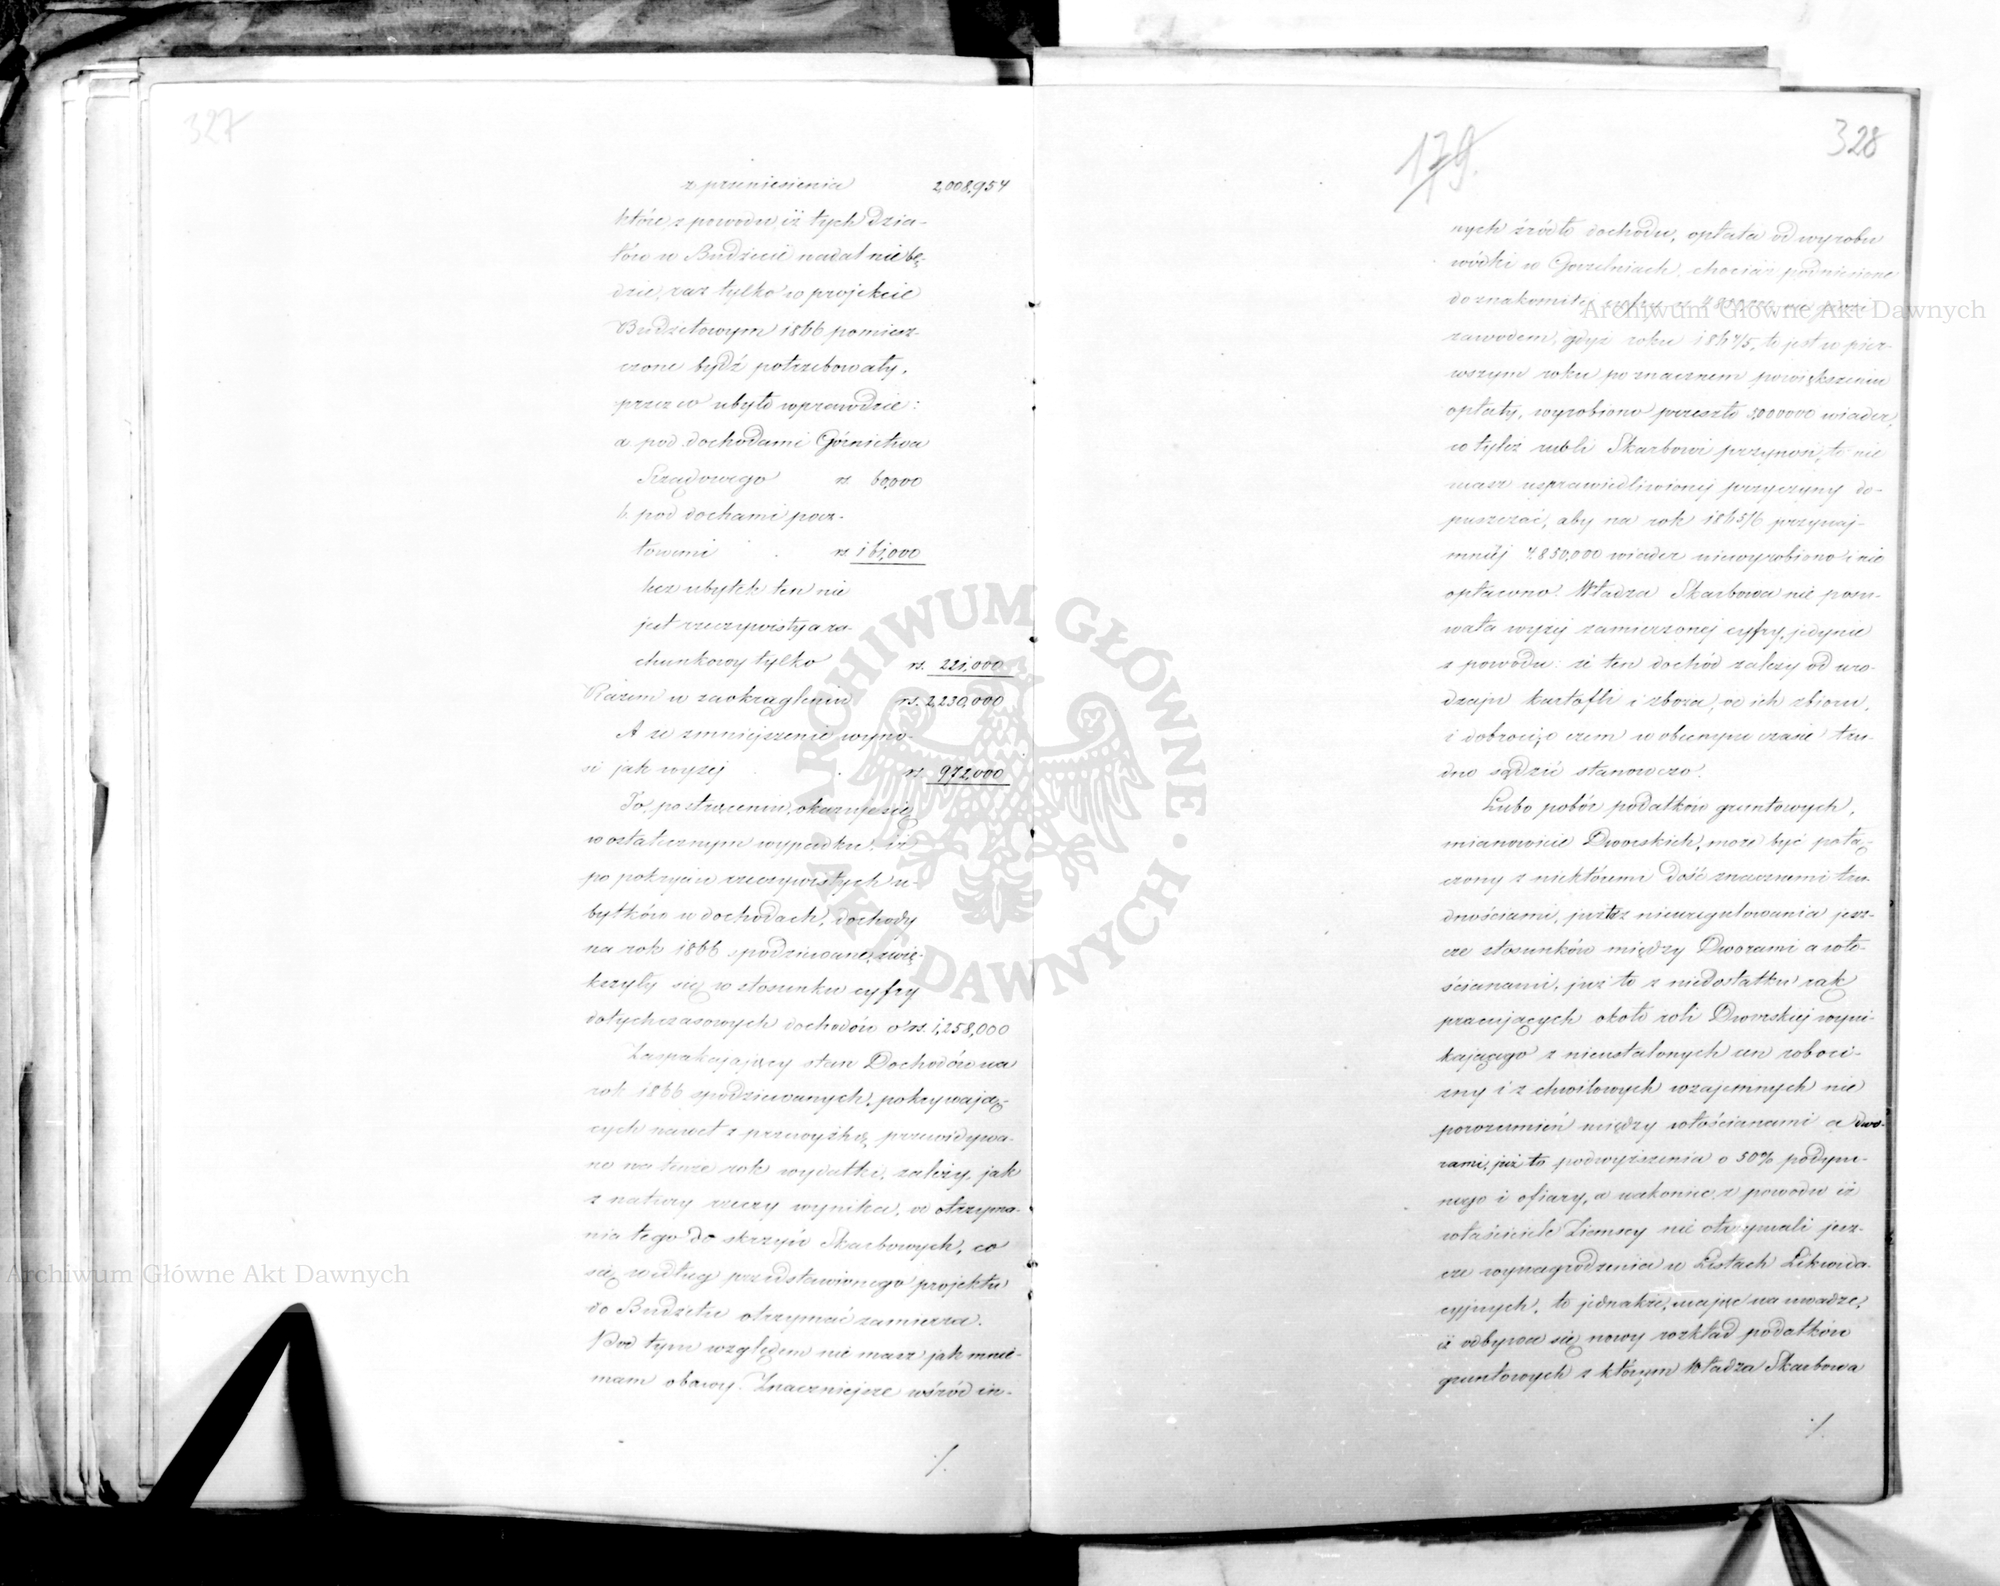 327
z przeniesienia 2,008,954
które z powodu, iż tych dzia-
łów w Budżecie nadal nie bę-
dzie, raz tylko w projekcie
Budżetowym 1866 pomiesz-
czone bydź potrzebowały,
przez co ubyło wprawdzie:
a. pod dochodami Górnictwa
Rządowego rs. 60,000
b. pod dochami pocz-
towemi rs. 161,000
lecz ubytek ten nie
jest rzeczywisty a ra-
chunkowy tylko rs. 221,000
Razem w zaokrągleniu rs. 2,230,000
A że zmniejszenie wyno-
si jak wyżej rs. 972,000
To, po strąceniu, okazuje się
w ostatecznym wypadku, iż
po pokryciu rzeczywistych u-
bytków w dochodach, dochody
na rok 1866 spodziewane, zwię-
kszyły się w stosunku cyfry
dotychczasowych dochodów o rs. 1,258,000
Zaspakajający stan Dochodów na
rok 1866 spodziewanych, pokrywają-
cych nawet z przewyżką, przewidywa-
ne na tenże rok wydatki, zależy, jak
z natury rzeczy wynika, od otrzyma-
nia tego do skrzyń Skarbowych, co
się według przedstawionego projektu
do Budżetu otrzymać zamierza.
Pod tym względem nie masz jak mnie-
mam obawy. Znaczniejsze wśród in-
./.
179.
328
nych źródło dochodu, opłata od wyrobu
wódki w Gorzelniach, chociaż podniesione
do znakomitej cyfry rs. 4,850,000 nie
zawodem, gdyż roku 1864/5, to jest w pier-
wszym roku po znacznem powiększeniu
opłaty, wyrobiono przeszło 5,000000 wiader,
to tyleż rubli Skarbowi przynosi, to nie
masz usprawiedliwionej przyczyny do-
puszczać, aby na rok 1865/6 przynaj-
mniej 4,850,000 wiader niewyrobiono i nie
opłacono. Władza Skarbowa nie
wała wyżej zamierzonej cyfry, jedynie
z powodu: że ten dochód zależy od uro-
dzaju kartofli i zboża, od ich zbioru,
i dobroci; o czem w obecnym czasie tru-
dno sądzić stanowczo.
Lubo pobór podatków gruntowych,
mianowicie Dworskich, może być połą-
czony z niektóremi dość znacznemi tru-
dnościami, już to z nieuregulowania jesz-
cze stosunków między Dworami a wło-
ścianami, już to z niedostatku rąk
pracujących około roli Dworskiej wyni-
kającego z nieustalonych cen roboci-
zny i z chwilowych wzajemnych nie
porozumień między włościanami a dwo-
rami, już to podwyższenia o 50% podym-
nego i ofiary, a nakoniec, z powodu iż
właściciele Ziemscy nie otrzymali jesz-
cze wynagrodzenia w Listach Likwida-
cyjnych, to jednakże, mając na uwadze,
iż odbywa się nowy rozkład podatków
gruntowych z którym Władza Skarbowa
./.
Archiwum Główne Akt Dawnych
Archiwum Główne Akt Dawnych
ARCHIWUM GŁÓWNE AKT DAWNYCH